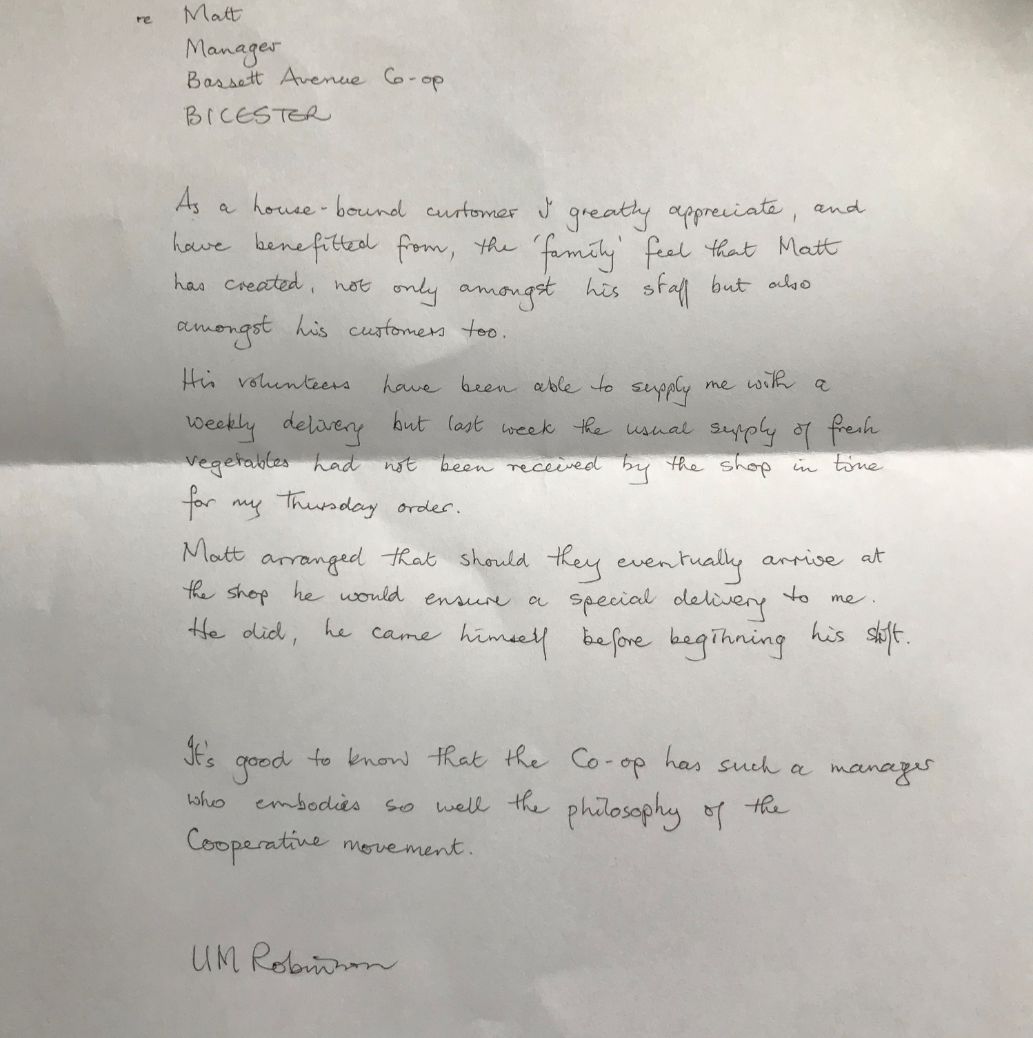 re Matt
Manager
Bassett Avenue Co-op
BICESTER
As a house-bound customer I greatly appreciate, and
have benefitted from, the 'family' feel that Matt
has created, not only amongst his staff but also
amongst his customers too.
His volunteers have been able to supply me with a
weekly delivery but last week the usual supply of fresh
vegetables had not been received by the shop in time
for my Thursday order.
Matt arranged that should they eventually arrive at
the shop he would ensure a special delivery to me.
He did, he came himself before beginning his shift.
It's good to know that the Co-op has such a manager
who embodies so well the philosophy of the
Cooperative movement.
UM Robinson